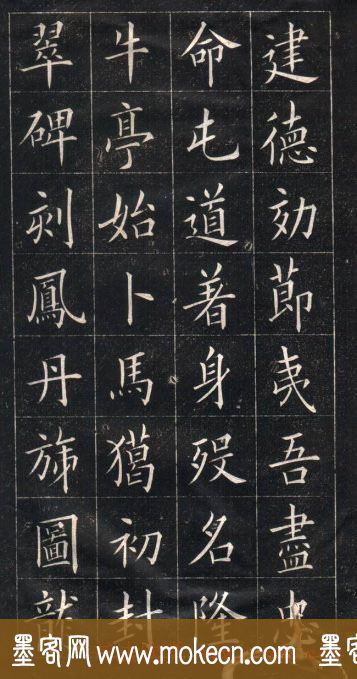 建德効節夷吾盡忠
命屯道著身殁名隆
牛亭始卜馬獦初封
翠碑刻鳳丹旐圖龍
墨客网 www.mokecn.com 墨客